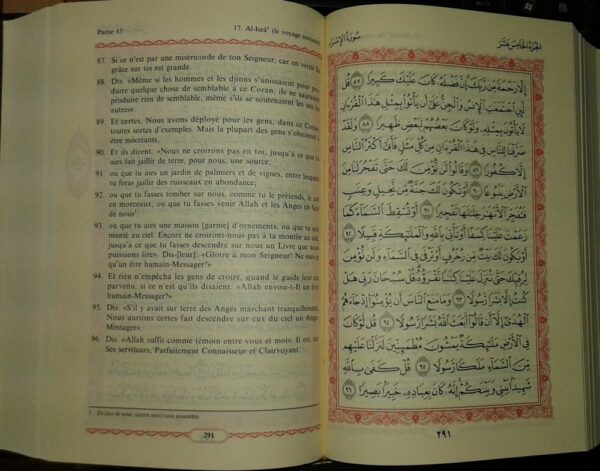 Partie 15
17. Al-Isrâ' (le voyage nocturne)
87. Si ce n'est par une miséricorde de ton Seigneur, car en vérité Sa
grâce sur toi est grande.
88. Dis: «Même si les hommes et les djinns s'unissaient pour pro-
duire quelque chose de semblable à ce Coran, ils ne sauraient
produire rien de semblable, même s'ils se soutenaient les uns les
autres».
89. Et certes, Nous avons déployé pour les gens, dans ce Coran,
toutes sortes d'exemples. Mais la plupart des gens s'obstinent à
être mécréants.
90. Et ils dirent: «Nous ne croirons pas en toi, jusqu'à ce que tu
aies fait jaillir de terre, pour nous, une source;
91. ou que tu aies un jardin de palmiers et de vignes, entre lesquels
tu feras jaillir des ruisseaux en abondance;
92. ou que tu fasses tomber sur nous, comme tu le prétends, le ciel
en morceaux, ou que tu fasses venir Allah et les Anges en face
de nous¹;
93. ou que tu aies une maison [garnie] d'ornements; ou que tu sois
monté au ciel. Encore ne croirons-nous pas à ta montée au ciel,
jusqu'à ce que tu fasses descendre sur nous un Livre que nous
puissions lire». Dis-[leur]: «Gloire à mon Seigneur! Ne suis-je
qu'un être humain-Messager?»
94. Et rien n'empêcha les gens de croire, quand le guide leur est
parvenu, si ce n'est qu'ils disaient: «Allah envoie-t-Il un être
humain-Messager?»
95. Dis: «S'il y avait sur terre des Anges marchant tranquillement,
Nous aurions certes fait descendre sur eux du ciel un Ange-
Messager».
96. Dis: «Allah suffit comme témoin entre vous et moi. Il est, sur
Ses serviteurs, Parfaitement Connaisseur et Clairvoyant.
1 En face de nous: (autre sens) tous ensemble.
291
الجزء الخامس عشر
سورة الإسراء
إِلَّا رَحْمَةً مِّن رَّبِّكَ إِنَّ فَضْلَهُ كَانَ عَلَيْكَ كَبِيرًا ٨٧ قُل
لَّئِنِ ٱجْتَمَعَتِ ٱلْإِنسُ وَٱلْجِنُّ عَلَىٰٓ أَن يَأْتُوا۟ بِمِثْلِ هَٰذَا ٱلْقُرْءَانِ
لَا يَأْتُونَ بِمِثْلِهِۦ وَلَوْ كَانَ بَعْضُهُمْ لِبَعْضٍ ظَهِيرًا ٨٨ وَلَقَدْ
صَرَّفْنَا لِلنَّاسِ فِى هَٰذَا ٱلْقُرْءَانِ مِن كُلِّ مَثَلٍ فَأَبَىٰٓ أَكْثَرُ ٱلنَّاسِ
إِلَّا كُفُورًا ٨٩ وَقَالُوا۟ لَن نُّؤْمِنَ لَكَ حَتَّىٰ تَفْجُرَ لَنَا مِنَ
ٱلْأَرْضِ يَنۢبُوعًا ٩٠ أَوْ تَكُونَ لَكَ جَنَّةٌ مِّن نَّخِيلٍ وَعِنَبٍ
فَتُفَجِّرَ ٱلْأَنْهَٰرَ خِلَٰلَهَا تَفْجِيرًا ٩١ أَوْ تُسْقِطَ ٱلسَّمَآءَ كَمَا
زَعَمْتَ عَلَيْنَا كِسَفًا أَوْ تَأْتِىَ بِٱللَّهِ وَٱلْمَلَٰٓئِكَةِ قَبِيلًا ٩٢
أَوْ يَكُونَ لَكَ بَيْتٌ مِّن زُخْرُفٍ أَوْ تَرْقَىٰ فِى ٱلسَّمَآءِ وَلَن نُّؤْمِنَ
لِرُقِيِّكَ حَتَّىٰ تُنَزِّلَ عَلَيْنَا كِتَٰبًا نَّقْرَؤُهُۥ قُلْ سُبْحَانَ رَبِّى هَلْ
كُنتُ إِلَّا بَشَرًا رَّسُولًا ٩٣ وَمَا مَنَعَ ٱلنَّاسَ أَن يُؤْمِنُوٓا۟ إِذْ جَآءَهُمُ
ٱلْهُدَىٰٓ إِلَّآ أَن قَالُوٓا۟ أَبَعَثَ ٱللَّهُ بَشَرًا رَّسُولًا ٩٤ قُل لَّوْ كَانَ
فِى ٱلْأَرْضِ مَلَٰٓئِكَةٌ يَمْشُونَ مُطْمَئِنِّينَ لَنَزَّلْنَا عَلَيْهِم
مِّنَ ٱلسَّمَآءِ مَلَكًا رَّسُولًا ٩٥ قُلْ كَفَىٰ بِٱللَّهِ
شَهِيدًۢا بَيْنِى وَبَيْنَكُمْ إِنَّهُۥ كَانَ بِعِبَادِهِۦ خَبِيرًۢا بَصِيرًا ٩٦
٢٩١